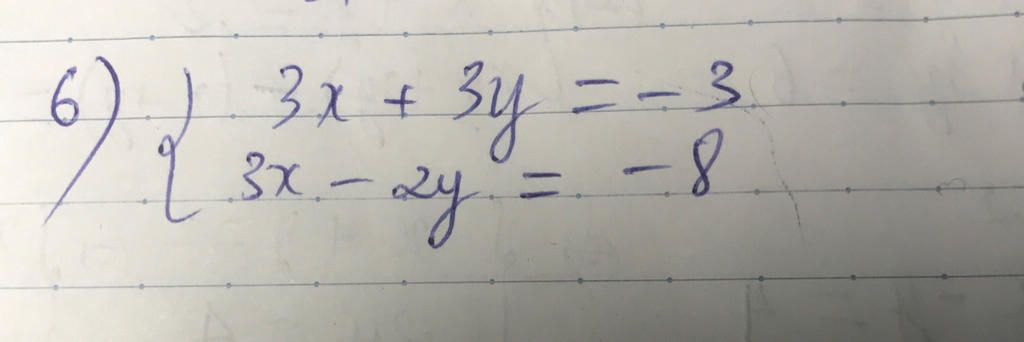 6) { 3x + 3y = - 3
3x - 2y = - 8